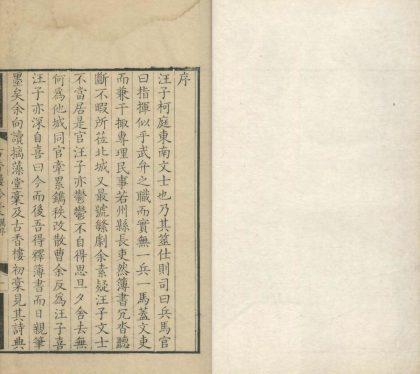 序
汪子柯庭東南文士也乃其筮仕則司曰兵馬官
曰指揮似乎武弁之職而實無一兵一馬蓋文吏
而兼干掫專理民事若州縣長吏然簿書冗沓聽
斷不暇所莅北城又最號繁劇余素疑汪子文士
不當居是官汪子亦鬱鬱不自得思旦夕舍去無
何爲他城同官牽累鐫秩改散曹余反爲汪子喜
汪子亦深自喜曰今而後吾得釋簿書而日親筆
墨矣余向讀摛藻堂稾及古香樓初稾見其詩典